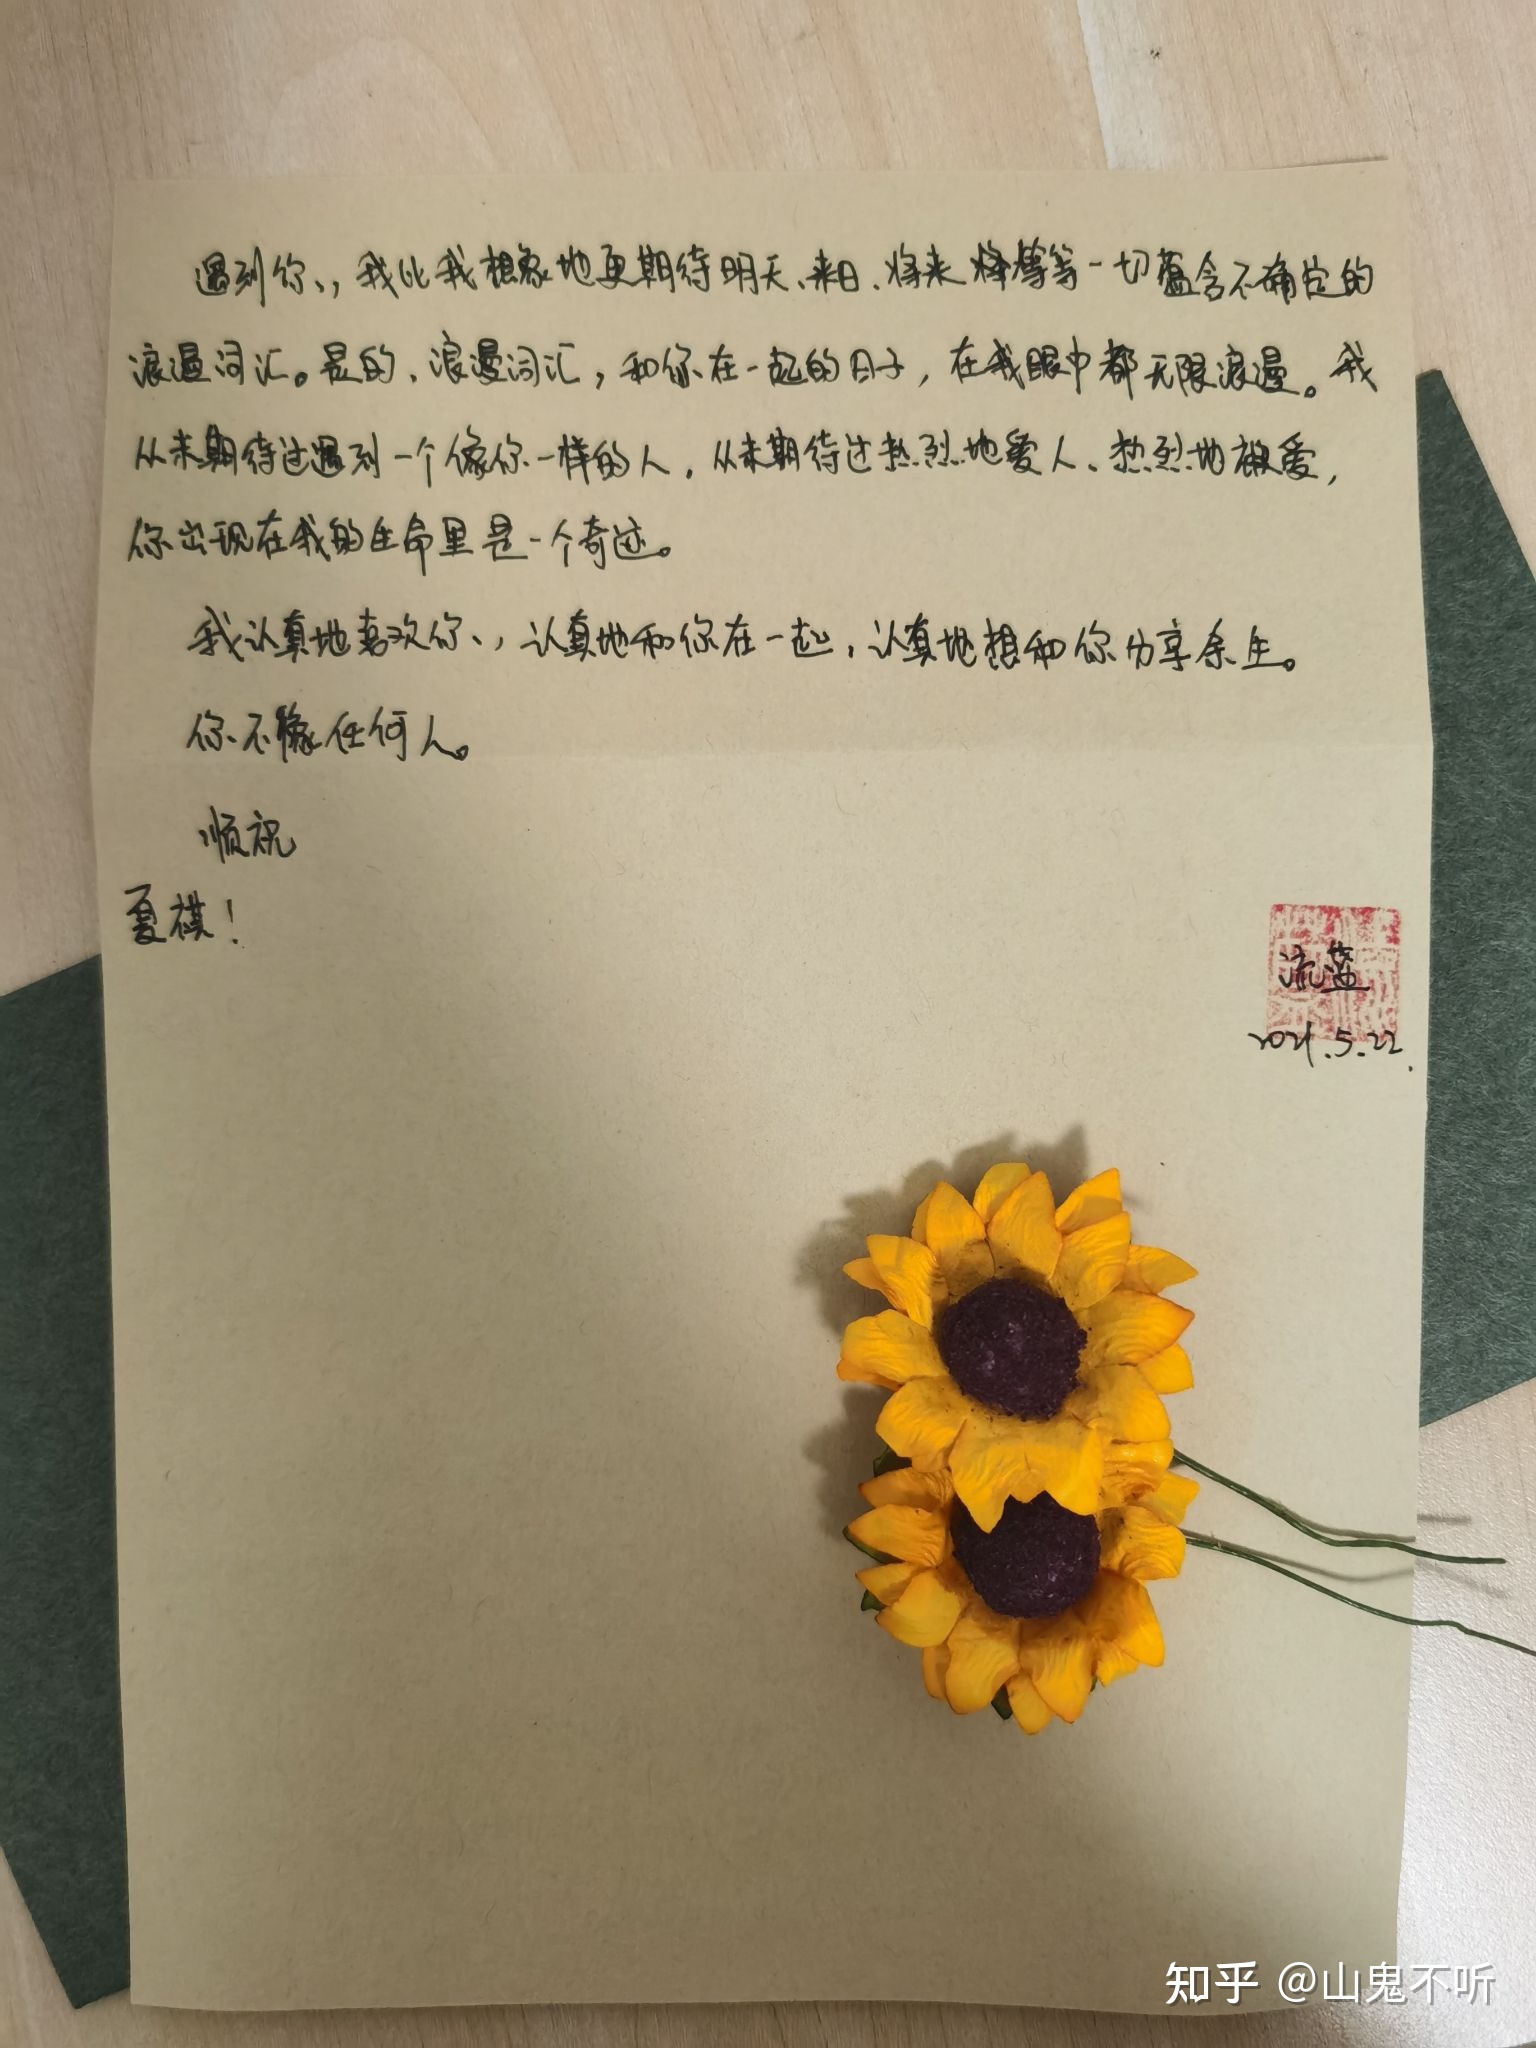 遇到你，我比我想象地更期待明天、来日、将来等等一切蕴含不确定的
浪漫词汇。是的，浪漫词汇，和你在一起的日子，在我眼中都无限浪漫。我
从未期待过遇到一个像你一样的人，从未期待过热烈地爱人、热烈地被爱，
你出现在我的生命里是一个奇迹。
我认真地喜欢你，认真地和你在一起，认真地想和你分享余生。
你不像任何人。
顺祝
夏祺！
流蓝
2021.5.22.
知乎 @山鬼不听